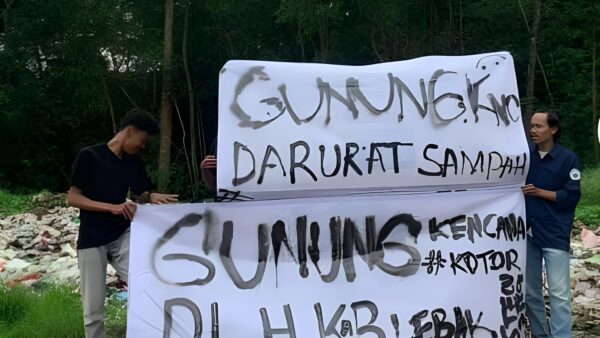 GUNUNG.KNC
DARURAT SAMPAH
#
GUNUNG KENCANA
# KOTOR
DLH KAB LEBAK